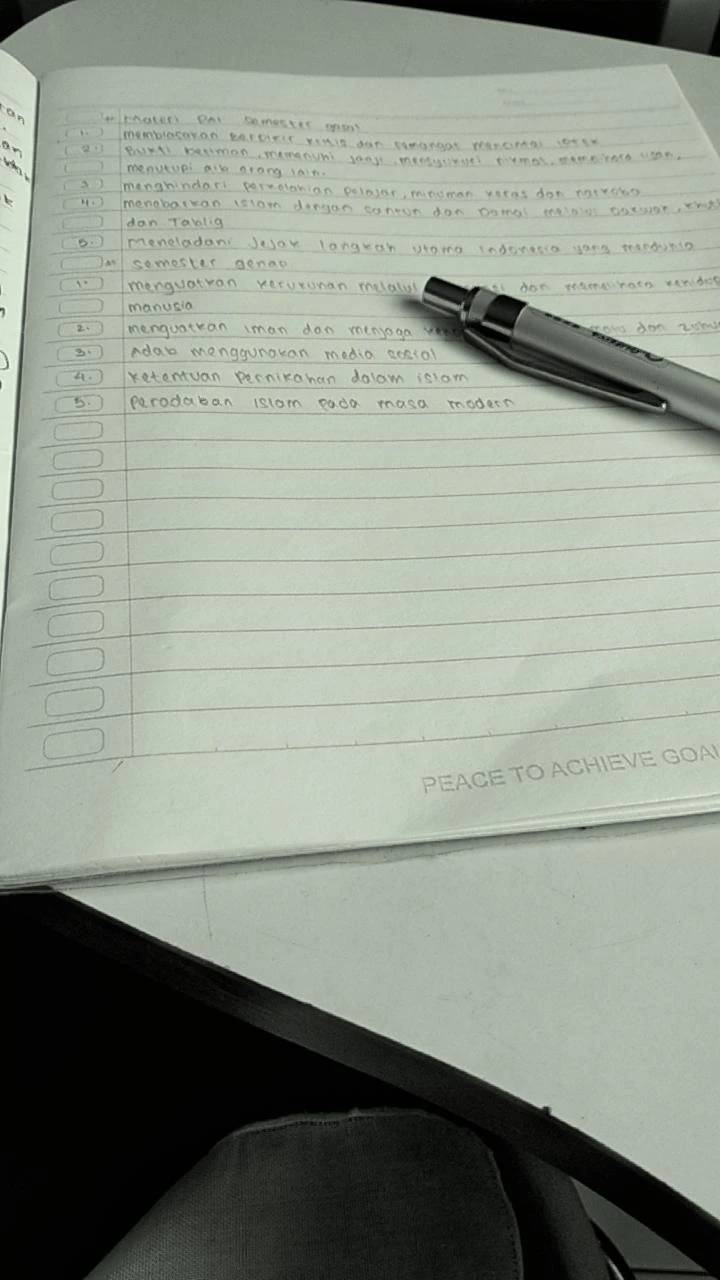 Materi PAI semester gasal
1. membiasakan berpikir kritis dan semangat mencintai iptek
2. Bukti beriman, memenuhi janji, mensyukuri nikmat, memelihara lisan,
menutupi aib orang lain.
3. menghindari perkelahian pelajar, minuman keras dan narkoba
4. menebarkan islam dengan santun dan Damai melalui Dakwah,
dan Tablig
5. Meneladani Jejak langkah utama Indonesia yang mendunia
semester genap
1. menguatkan kerukunan melalui dan memelihara
manusia
2. menguatkan iman dan menjaga dan
3. Adab menggunakan media sosial
4. ketentuan Pernikahan dalam islam
5. Peradaban islam pada masa modern
PEACE TO ACHIEVE